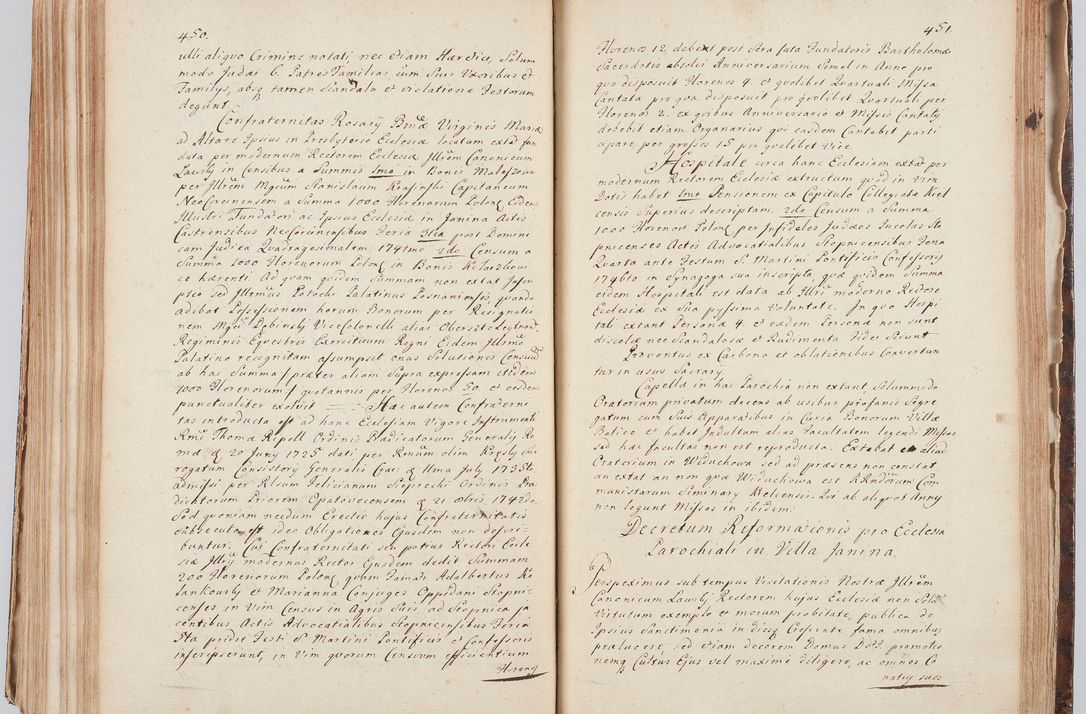 450.
ulli aliquo Crimine notati, nec etiam Hæretici, Solum
modo Judæi 6. Patres Familias, cum Suis Uxoribus et
Familijs, absq tamen Scandalo et violatione Festorum
degunt.
Confraternitas Rosarij Bmæ Virginis Mariæ
ad Altare Ipsius in Presbyterio Ecclesiæ locatum extat fun
data per modernum Rectorem Ecclesiæ Illrem Canonicum
Lauski in Censibus a Summis 1mo in Bonis Maleszowa
per Illrem Mgcum Stanislaum Krasinski Capitaneum
NeoCorcinensem a Summa 1000 Florenorum Polon. Eidem
Illustri Fundatori ac Ipsius Ecclesiæ in Janina Actis
Castrensibus NeoCorcinensibus Feria 3tia post Domini
cam Judica Quadragesimalem 1741mo 2do Censum a
Summa 1000 Florenorum Polon. in Bonis
se hærenti Ad quam quidem Summam non extat Inscri
ptio sed Illrmus Potocki Palatinus Posnaniensis, quando
adibat Possessionem horum Bonorum per Resignatio
nem Mgci Dębinski ViceColonelli alias Obersztleytnant
Regiminis Equestris Exercituum Regni Eidem Illrmo
Palatino recognitam assumpsit onus Solutionis Censuum
ab hac Summa / præter aliam Supra expressam itidem
1000 Florenorum / quotannis per Florenos 50. et eosdem
punctualiter exolvit Hæc autem Confraterni
tas introducta est ad hanc Ecclesiam Vigore Instrumenti
Rmi Thomæ Ripoll Ordinis Prædicatorum Generalis Ro
mæ d 20 Juny 1725 dati per Rmum olim Su
rogatum Consistorij Generalis Crac: d 11ma July 1735to
admissi per Rlsum Felicianum Sieprecki Ordinis Præ
dicatorum Priorem Opatovecensem d 21 8bris 1742do.
Sed quoniam necdum Erectio hujus Confraternitatis
subsecuta est, ideo Obligationes Ejusdem non descri
buntur. Cui Confraternitati seu potius Rector Eccle
siæ Illris modernus Rector Ejusdem dedit Summam
200 Florenorum Polon. quam Famati Adalbertus Ko
lankowski et Marianna Conjuges Oppidani Stopni
censes in Vim Census in Agris Suis, ad Stopnica ja
centibus Actis Advocatialibus Stopnicensibus Feria
5ta pridie Festi S. Martini Pontificis et Confessoris
inscripserunt, in Vim quorum Censuum efficientium
Florenos
451.
Florenos 12 debent post Sera fata Fundatoris Bartholomæi
Sacerdotis absolvi Anniversarium Semel in Anno pro
quo disposuit Florenos 4. et qvolibet Quartuali Missa
Cantata pro qva disposuit pro qvolibet Quartuali per
Florenos 2. ex qvibus Anniversario et Missis Cantatis
debebit etiam Organarius qui easdem Cantabit parti
cipare per grossos 15 pro qvalibet vice.
Hospitale circa hanc Ecclesiam extat per
modernum Rectorem Ecclesiæ extructum qvod in Vim
Dotis habet 1mo Pensionem ex Capitulo Collegiata Kiel
censis Superius descriptam. 2do Censum a Summa
1000 Florenorum Polon. per Infideles Judæos Incolas Sto
pnicenses Actis Advocatialibus Stopnicensibus Feria
Quarta ante Festum S. Martini Pontificis Confessoris
1746to in Synagoga sua inscripta qvæ qvidem Summa
eidem Hospitali est data ab Illri moderno Rectore
Ecclesiæ ex Sua pijssima Voluntate. In qvo Hospi
tali extant Personæ 4. et eædem Personæ non sunt
discolæ nec Scandalosæ et Rudimenta Fidei Sciunt
Proventus ex Carbona et oblationibus Convertun
tur in usus Sacrarij.
Capellæ in hac Parochia non extant Solummodo
Oratorium privatum decens ab usibus profanis Segre
gatum cum Suis Apparatibus in Curia Bonorum Villæ
Bolice et habet Indultum alias Facultatem legendi Missas
sed hæc facultas non est reproducta. Extabat et aliud
Oratorium in Widuchowa sed ad præsens non constat
an extat an non qvæ Widuchowa est RRndorum Com
munistarum Seminarij Kielcensis. Qui ab aliqvot Annis
non legunt Missas in ibidem.
Decretum Reformationis pro Ecclesia
Parochiali in Villa Janina
Perspeximus sub tempus Visitationis Nostræ Illrem
Canonicum Lauski Rectorem hujus Ecclesiæ non Solum
Virtutum exemplo et morum probitate, publica de
Ipsius Sanctimonia in dies Crescente fama omnibus
prælucere, sed etiam decorem Domus Dei, promoto
nemq Cultus Ejus vel maximè diligere, ac omnes Co
natus suos